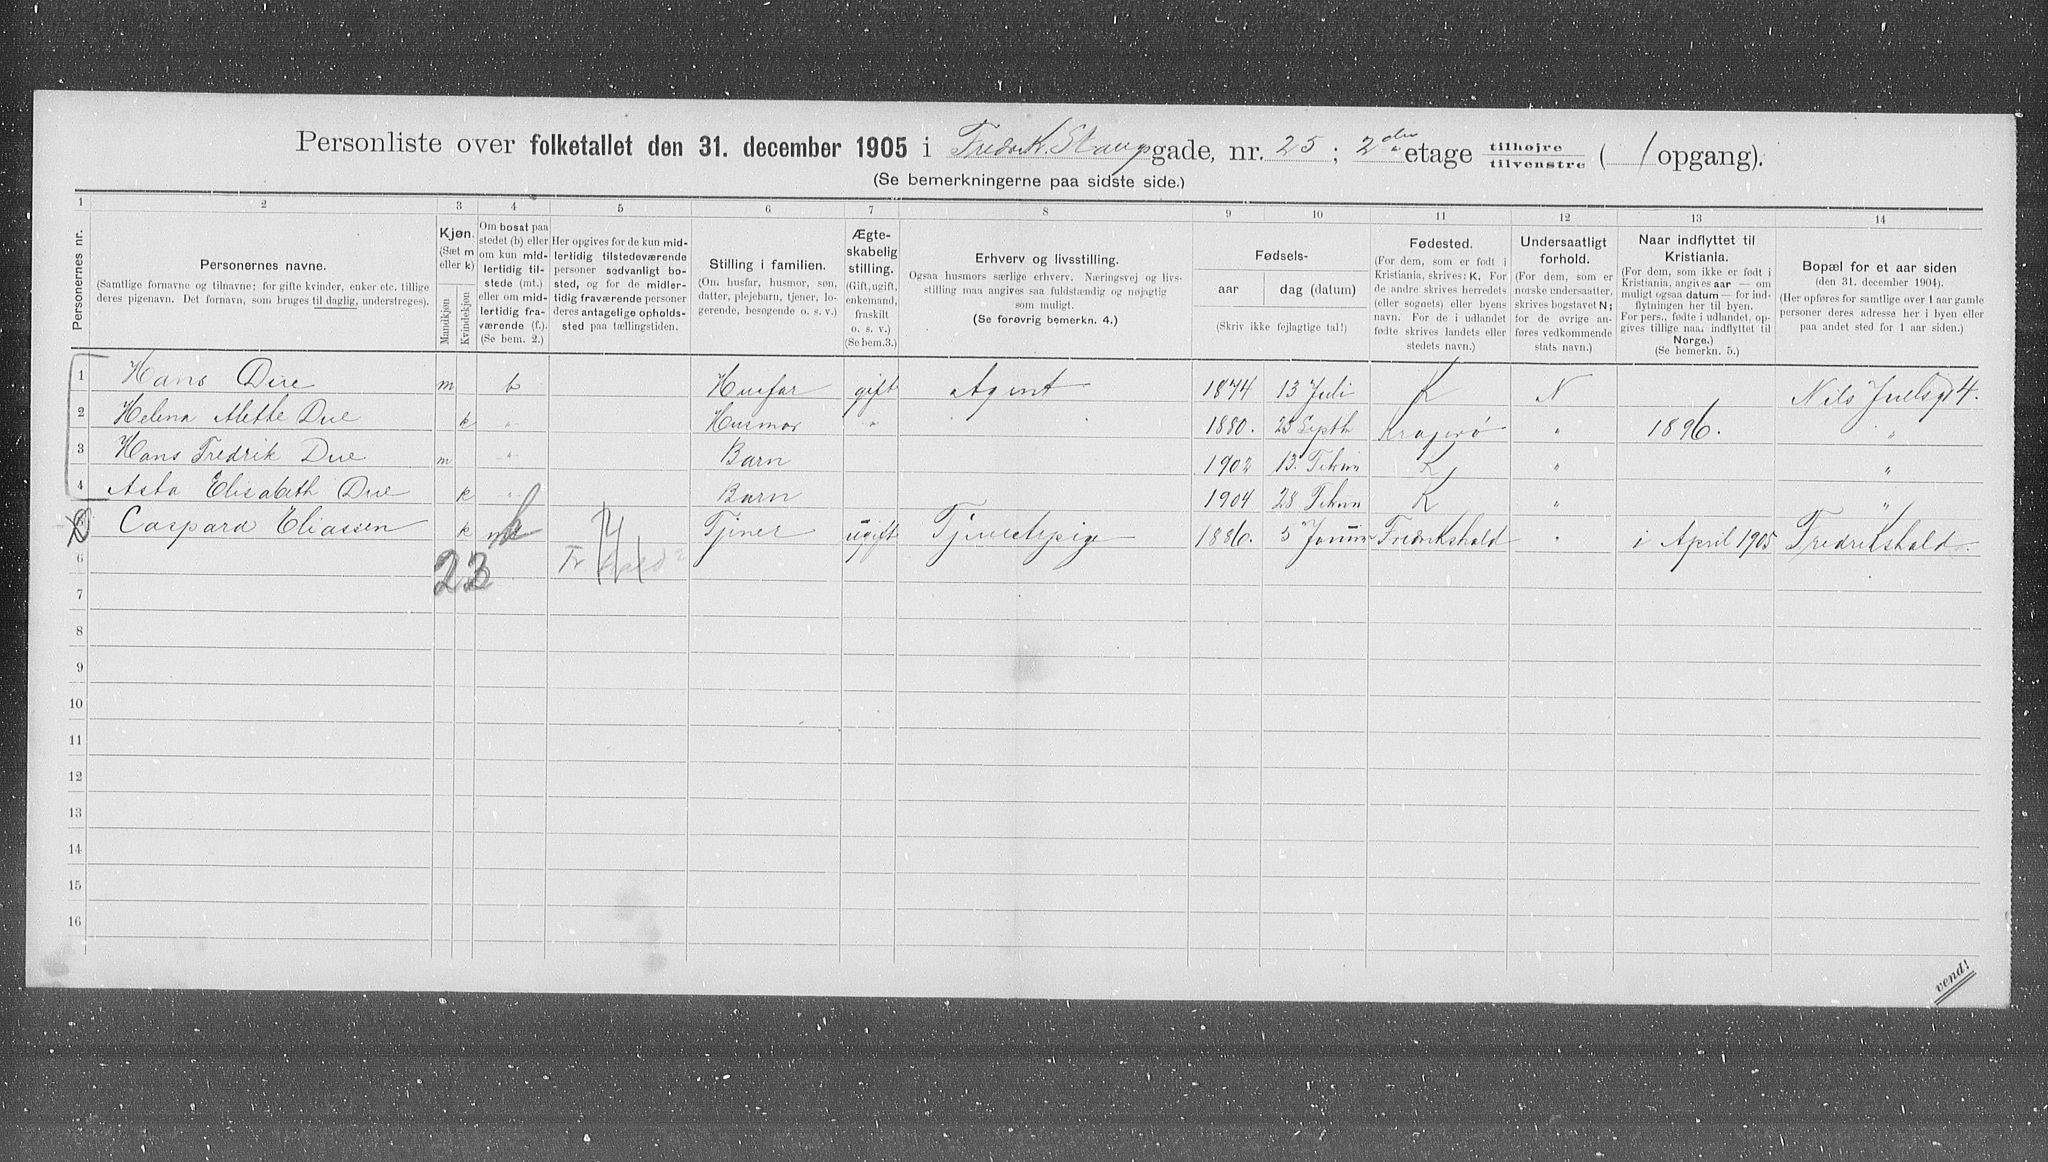 Personliste over folketallet den 31. december 1905 i Fredrik. Stangsgade, nr. 25; 2den etage tilhøjre tilvenstre ( / opgang).
(Se bemerkningerne paa sidste side.)
1 2 3 4 5 6 7 8 9 10 11 12 13 14
Personernes nr.
Personernes navne.
(Samtlige fornavne og tilnavne; for gifte kvinder, enker etc. tillige
deres pigenavn. Det fornavn, som bruges til daglig, understreges).
Kjøn.
(Sæt m
eller k)
Mandkjøn
Kvindekjøn
Om bosat paa
stedet (b) eller
om kun mid-
lertidig til-
stede (mt.)
eller om mid-
lertidig fra-
værende (f.).
(Se bem. 2.)
Her opgives for de kun mid-
lertidig tilstedeværende
personer sædvanligt bo-
sted, og for de midler-
tidig fraværende personer
deres antagelige opholds-
sted paa tællingstiden.
Stilling i familien.
(Om husfar, husmor, søn,
datter, plejebarn, tjener, lo-
gerende, besøgende o. s. v.)
Ægte-
skabelig
stilling.
(Gift, ugift,
enkemand,
fraskilt
o. s. v.)
(Se bem.3.)
Erhverv og livsstilling.
Ogsaa husmors særlige erhverv. Næringsvej og livs-
stilling maa angives saa fuldstændig og nøjagtig
som muligt.
(Se forøvrig bemerkn. 4.)
Fødsels-
aar
dag (datum)
(Skriv ikke fejlagtige tal!)
Fødested.
(For dem, som er født i
Kristiania, skrives: K. For
de andre skrives herredets
(eller sognets) eller byens
navn. For de i udlandet
fødte skrives landets eller
stedets navn.)
Undersaatligt
forhold.
(For dem, som er
norske undersaatter,
skrives bogstavet N;
for de øvrige an-
føres vedkommende
stats navn.)
Naar indflyttet til
Kristiania.
(For dem, som ikke er født i
Kristiania, angives aar — om
muligt ogsaa datum — for ind-
flytningen her til byen.
For pers., fødte i udlandet, op-
gives tillige naar indflyttet til
Norge.)
(Se bemerkn. 5.)
Bopæl for et aar siden
(den 31. december 1904).
(Her opføres for samtlige over 1 aar gamle
personer deres adresse her i byen eller
paa andet sted for 1 aar siden.)
1 Hans Due m b Husfar gift Agent 1874 13 Juli K N Nils Juelsgd 4.
2 Helena Alette Due k " Husmor " 1880. 25 Septb Kragerø " 1896. "
3 Hans Fredrik Due m " Barn 1902 13. K " "
4 Asta Elisabeth Due k " Barn 1904 28 K " "
Caspara Eliassen k Tjener ugift Tjenestepige 1886. 5 Januar Fredrikshald " i April 1905 Fredrikshald.
6 23
7
8
9
10
11
12
13
14
15
16
vend!